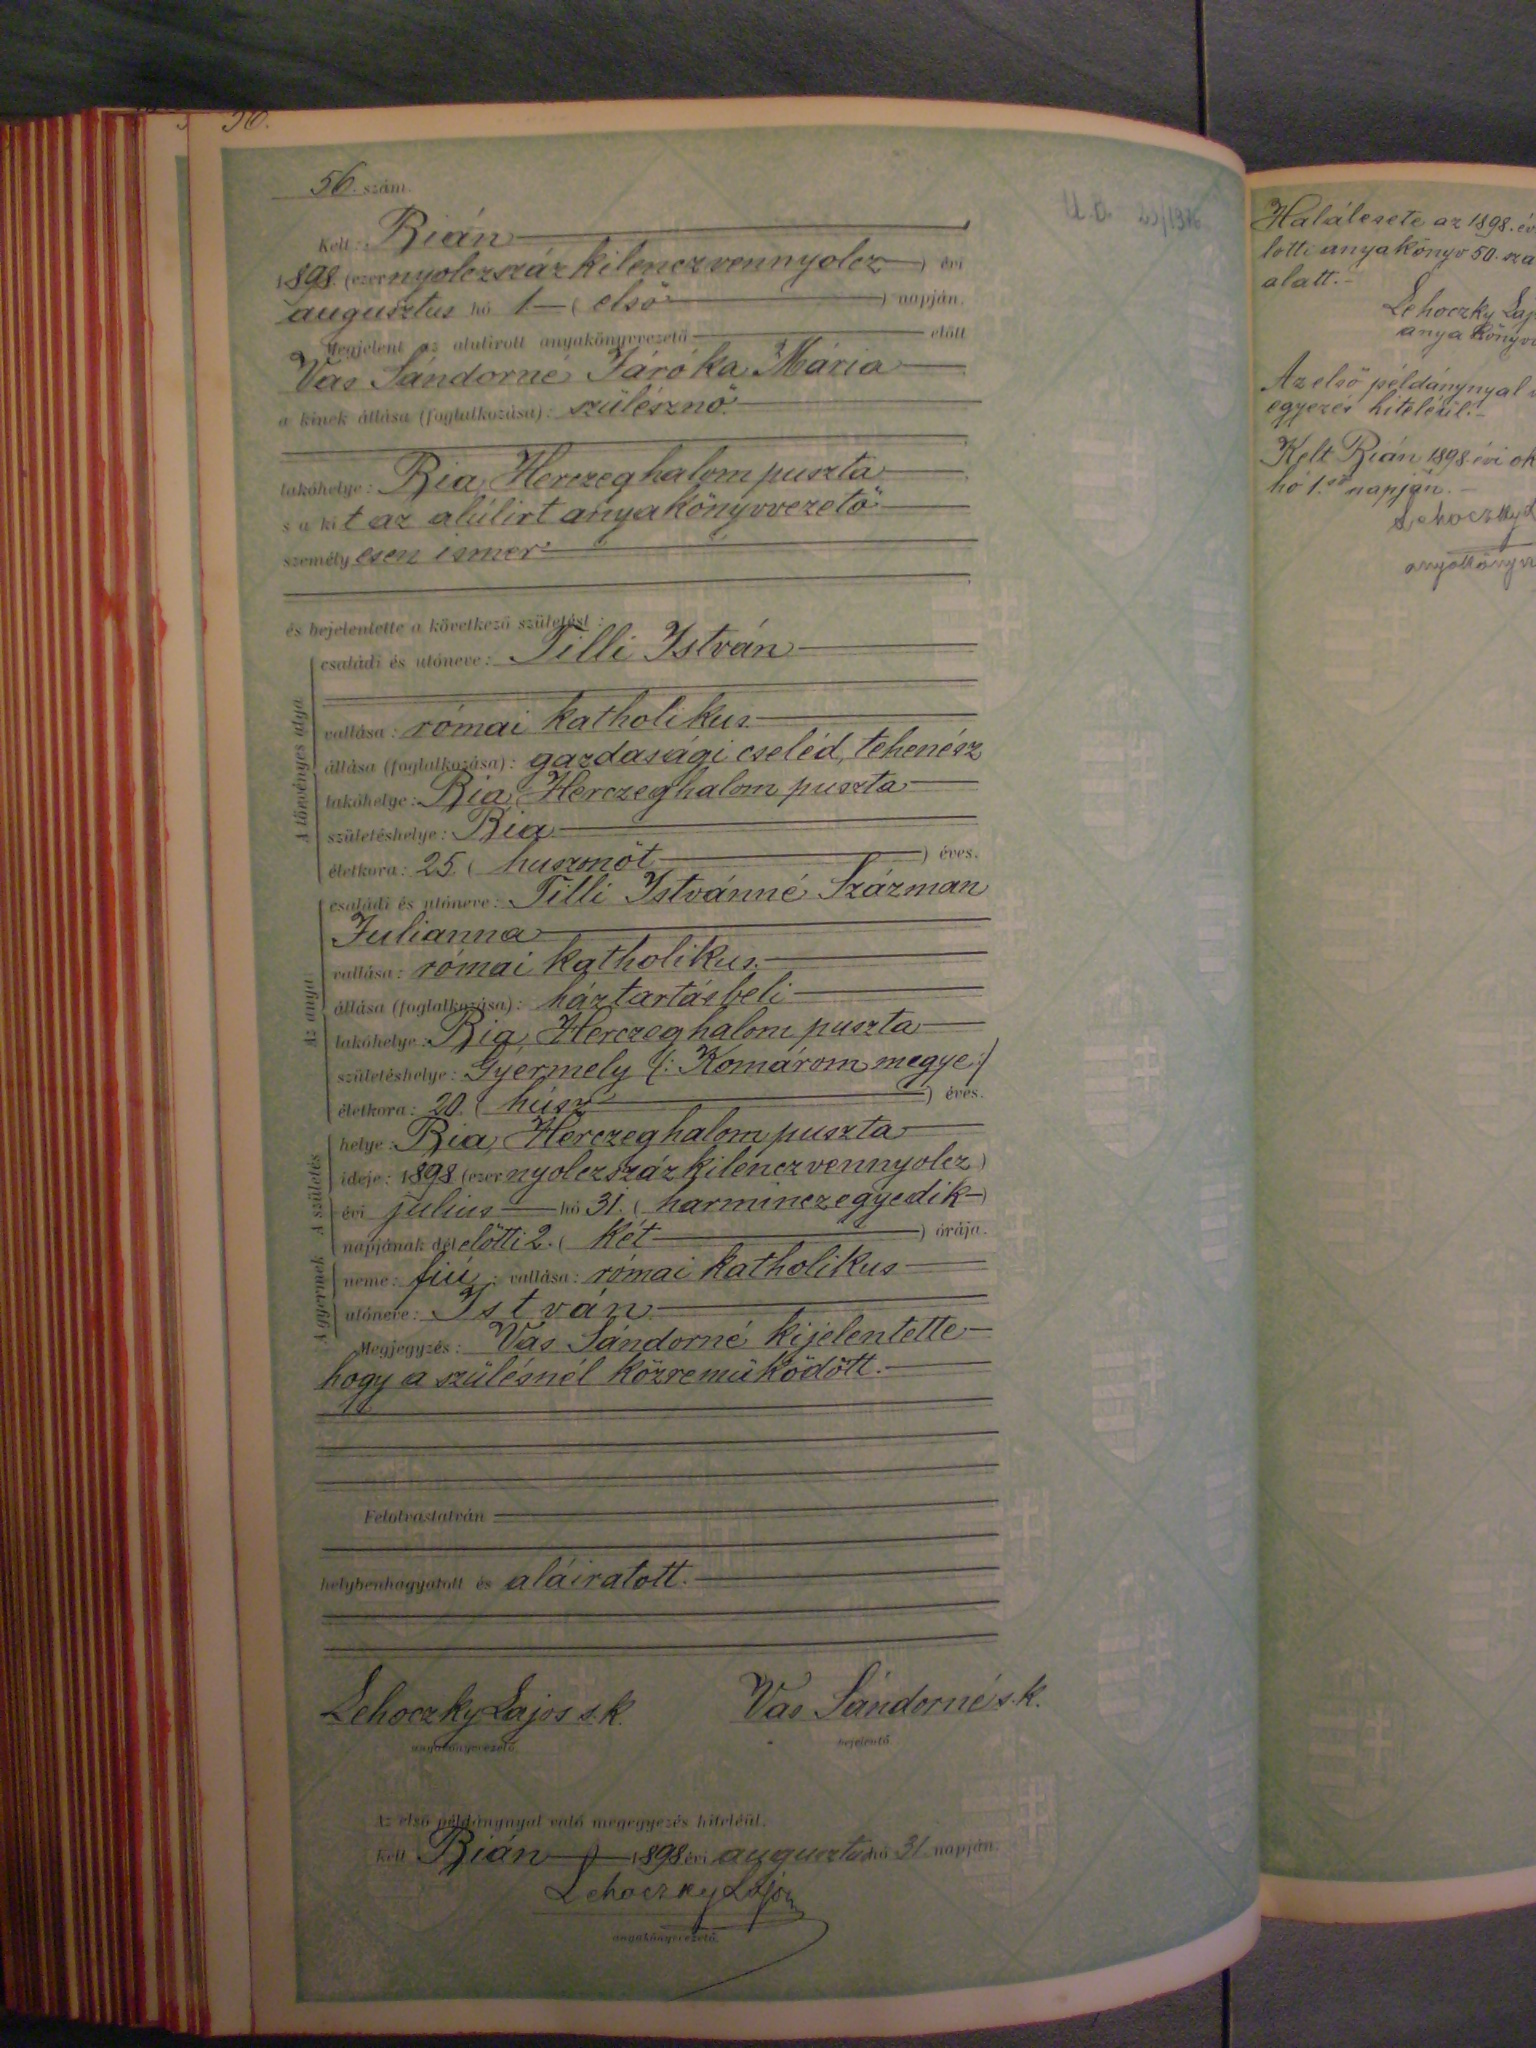 56.
56. szám.
Kelt: Bián
1898. (ezernyolczszázkilenczvennyolcz) évi
augusztus hó 1 (első) napján.
Megjelent az alulirott anyakönyvvezető előtt
Vas Sándorné Járóka Mária
a kinek állása (foglalkozása): szülésznő
lakóhelye: Bia, Herczeghalom puszta
s a kit az alúlirt anyakönyvvezető
személyesen ismer
és bejelentette a következő születést:
A törvényes atya
családi és utóneve: Tilli István
vallása: római katholikus
állása (foglalkozása): gazdasági cseléd, tehenész
lakóhelye: Bia, Herczeghalom puszta
születéshelye: Bia
életkora: 25. (huszonöt) éves.
Az anya
családi és utóneve: Tilli Istvánné Százman
Julianna
vallása: római katholikus.
állása (foglalkozása): háztartásbeli
lakóhelye: Bia, Herczeghalom puszta
születéshelye: Gyermely (: Komárom megye :)
életkora: 20. (húsz) éves.
A születés
helye: Bia, Herczeghalom puszta
ideje: 1898 (ezernyolczszázkilenczvennyolcz)
évi julius hó 31. (harminczegyedik)
napjának délelőtti 2. (két) órája.
A gyermek
neme: fiú; vallása: római katholikus
utóneve: István
Megjegyzés: Vas Sándorné kijelentette
hogy a szülésnél közreműködött.
Felolvastatván
helybenhagyatott és aláiratott.
Lehoczky Lajos s.k. Vas Sándorné s.k.
anyakönyvvezető. bejelentő.
Az első példánynyal való megegyezés hiteléül.
Kelt Bián 1898 évi augusztus hó 31 napján.
Lehoczky Lajos
anyakönyvvezető.
Halálesete az 1898. év
lotti anyakönyv 50. szá
alatt.
Lehoczky Laj
anyakönyv
Az első példánynyal
egyezés hiteléül.
Kelt Bián 1898 évi ok
hó 1.ső napján.
Lehoczky L
anyakönyv